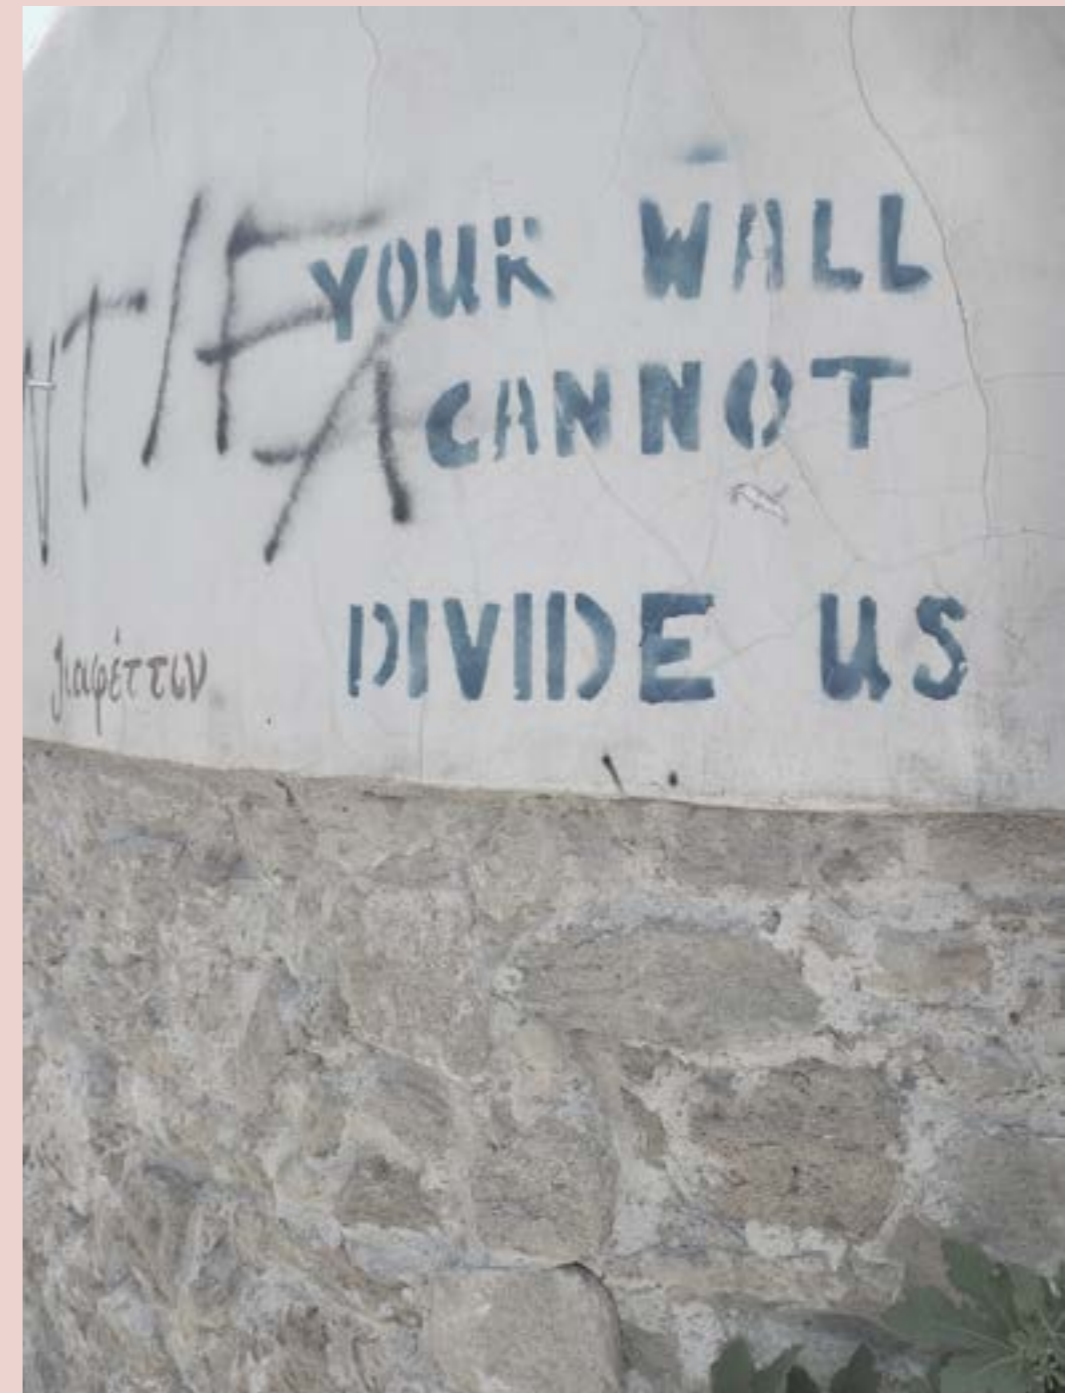 NTIFA
YOUR WALL
CANNOT
DIVIDE US